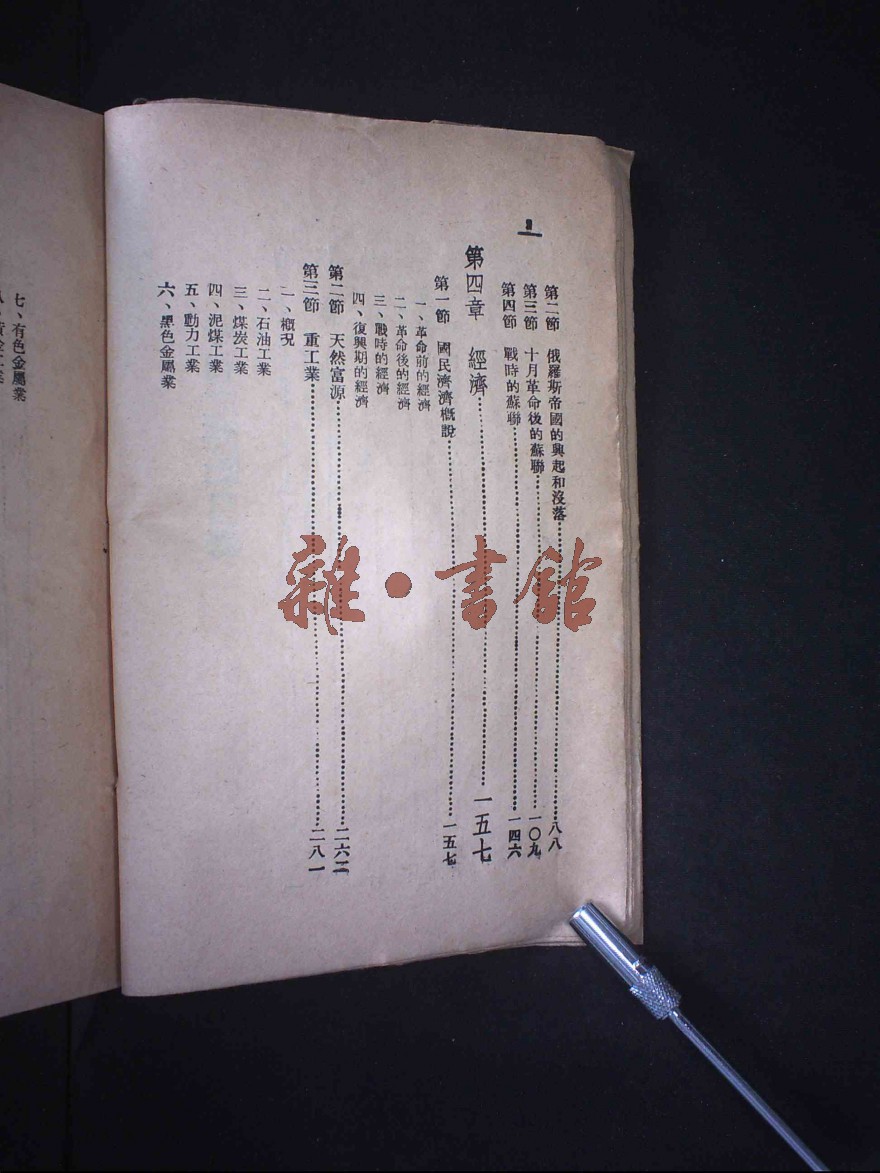 第二節　俄羅斯帝國的興起和沒落……八八
第三節　十月革命後的蘇聯……一〇九
第四節　戰時的蘇聯……一四六
第四章　經濟……一五七
第一節　國民濟濟概說……一五七
一、革命前的經濟
二、革命後的經濟
三、戰時的經濟
四、復興期的經濟
第二節　天然富源……二六二
第三節　重工業……二八一
一、概況
二、石油工業
三、煤炭工業
四、泥煤工業
五、動力工業
六、黑色金屬業
七、有色金屬業
雜·書館